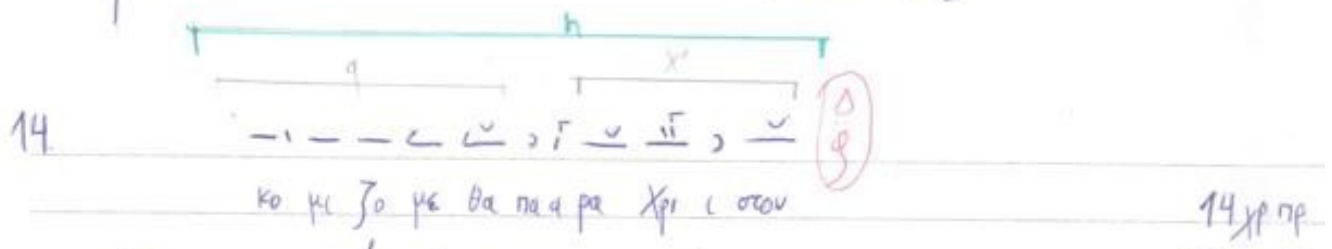 h
q x'
14 Δ
κο μι ζο με θα πα α ρα Χρι ι στου 14 χρ πρ